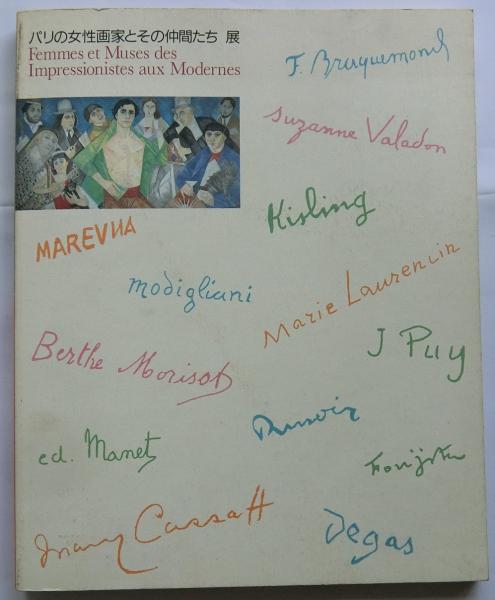 パリの女性画家とその仲間たち 展
Femmes et Muses des
Impressionistes aux Modernes
F. Bracquemond
Suzanne Valadon
Kisling
MAREVNA
modigliani
Marie Laurencin
J Puy
Berthe Morisot
Renoir
ed. Manet
Foujita
Mary Cassatt
Degas